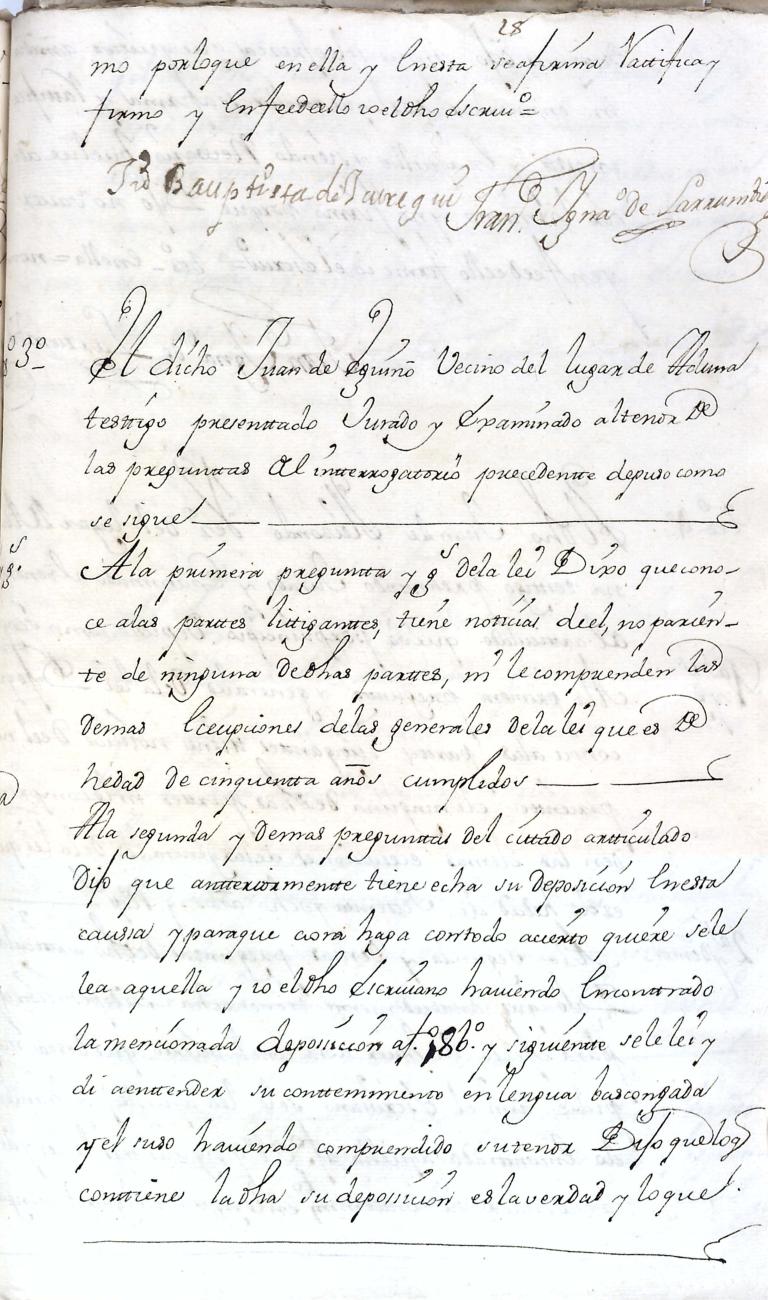 28
mo por loque en ella y Enesta se afirma Rattifica y
firmo y Enfeedeello io el dho Escriuº=
Baupttista de Jauregui Franº Ignaº de Larrumbi
3º El dicho Juan de Eguino Vecino del lugar de Aduna
testtigo presenttado Jurado y Examinado altenor de
las pregunttas del intterrogatorio precedentte depuso como
se sigue
A la primera preguntta y gs dela lei Dixo que cono-
ce alas parttes littiganttes, tiene noticias deel, no parien-
te de ninguna de dhas parttes, ni le comprenden las
demas Ecepciones delas generales dela lei que es de
hedad de cinquentta años cumplidos
Ala segunda y demas pregunttas del cittado artticulado
Dijo que antteriormentte tiene echa su deposición Enesta
caussa y paraque aora haga contodo acierto quiere sele
lea aquella y io el dho Escriuano hauiendo Encontrado
la mencionada deposicion a fº 18bº y siguientte sele lei y
di aenttender su conttenimiento en lengua bascongada
y el suso hauiendo comprendido su tenor Dijo que log
conttiene la dha su deposición es la verdad y lo que